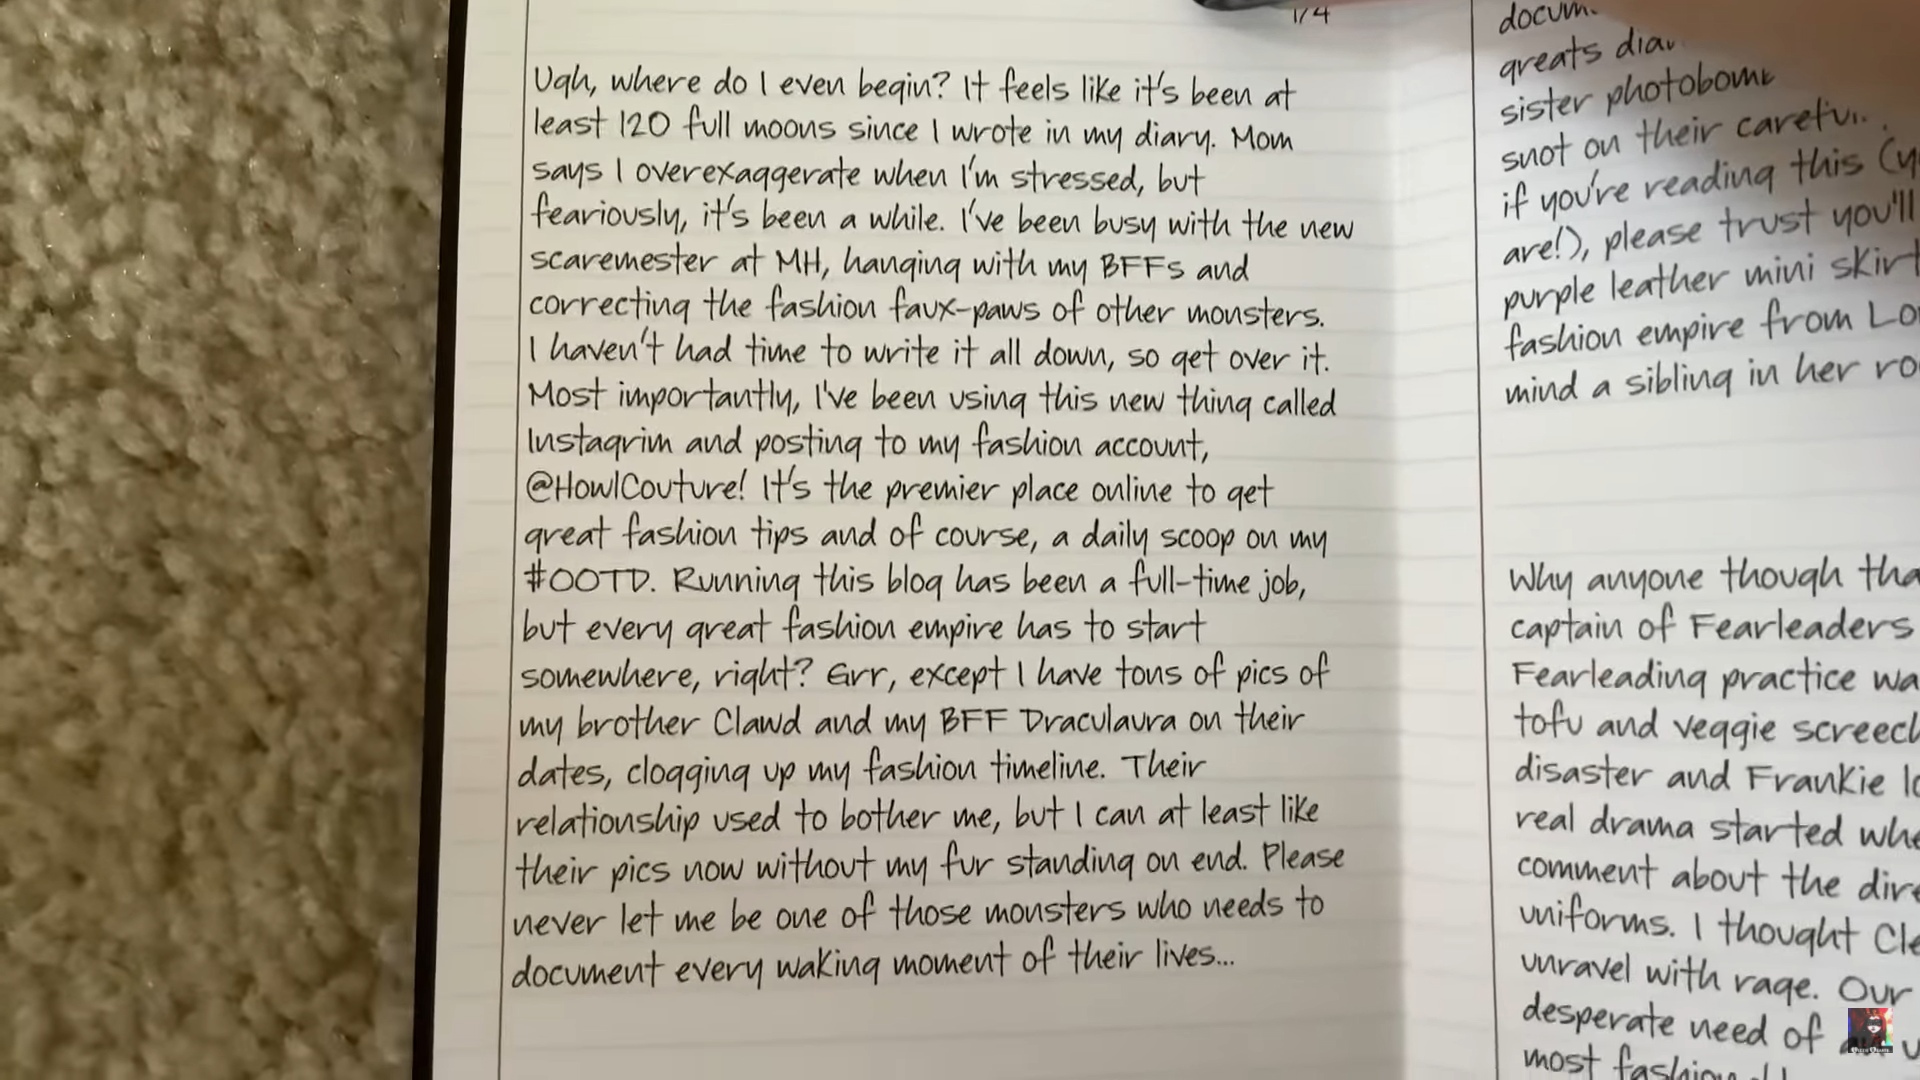 1/4
Ugh, where do I even begin? It feels like it's been at
least 120 full moons since I wrote in my diary. Mom
says I overexaggerate when I'm stressed, but
feariously, it's been a while. I've been busy with the new
scaremester at MH, hanging with my BFFs and
correcting the fashion faux-paws of other monsters.
I haven't had time to write it all down, so get over it.
Most importantly, I've been using this new thing called
Instagrim and posting to my fashion account,
@HowlCouture! It's the premier place online to get
great fashion tips and of course, a daily scoop on my
#OOTD. Running this blog has been a full-time job,
but every great fashion empire has to start
somewhere, right? Grr, except I have tons of pics of
my brother Clawd and my BFF Draculaura on their
dates, clogging up my fashion timeline. Their
relationship used to bother me, but I can at least like
their pics now without my fur standing on end. Please
never let me be one of those monsters who needs to
document every waking moment of their lives...
greats
sister
snot on their
if you're reading this
are!), please trust you'll
purple leather mini
fashion empire from
mind a sibling in her
Why anyone though
captain of Fearleaders
Fearleading practice
tofu and veggie
disaster and Frankie
real drama started
comment about the
uniforms. I thought
unravel with rage. Our
desperate need of
most